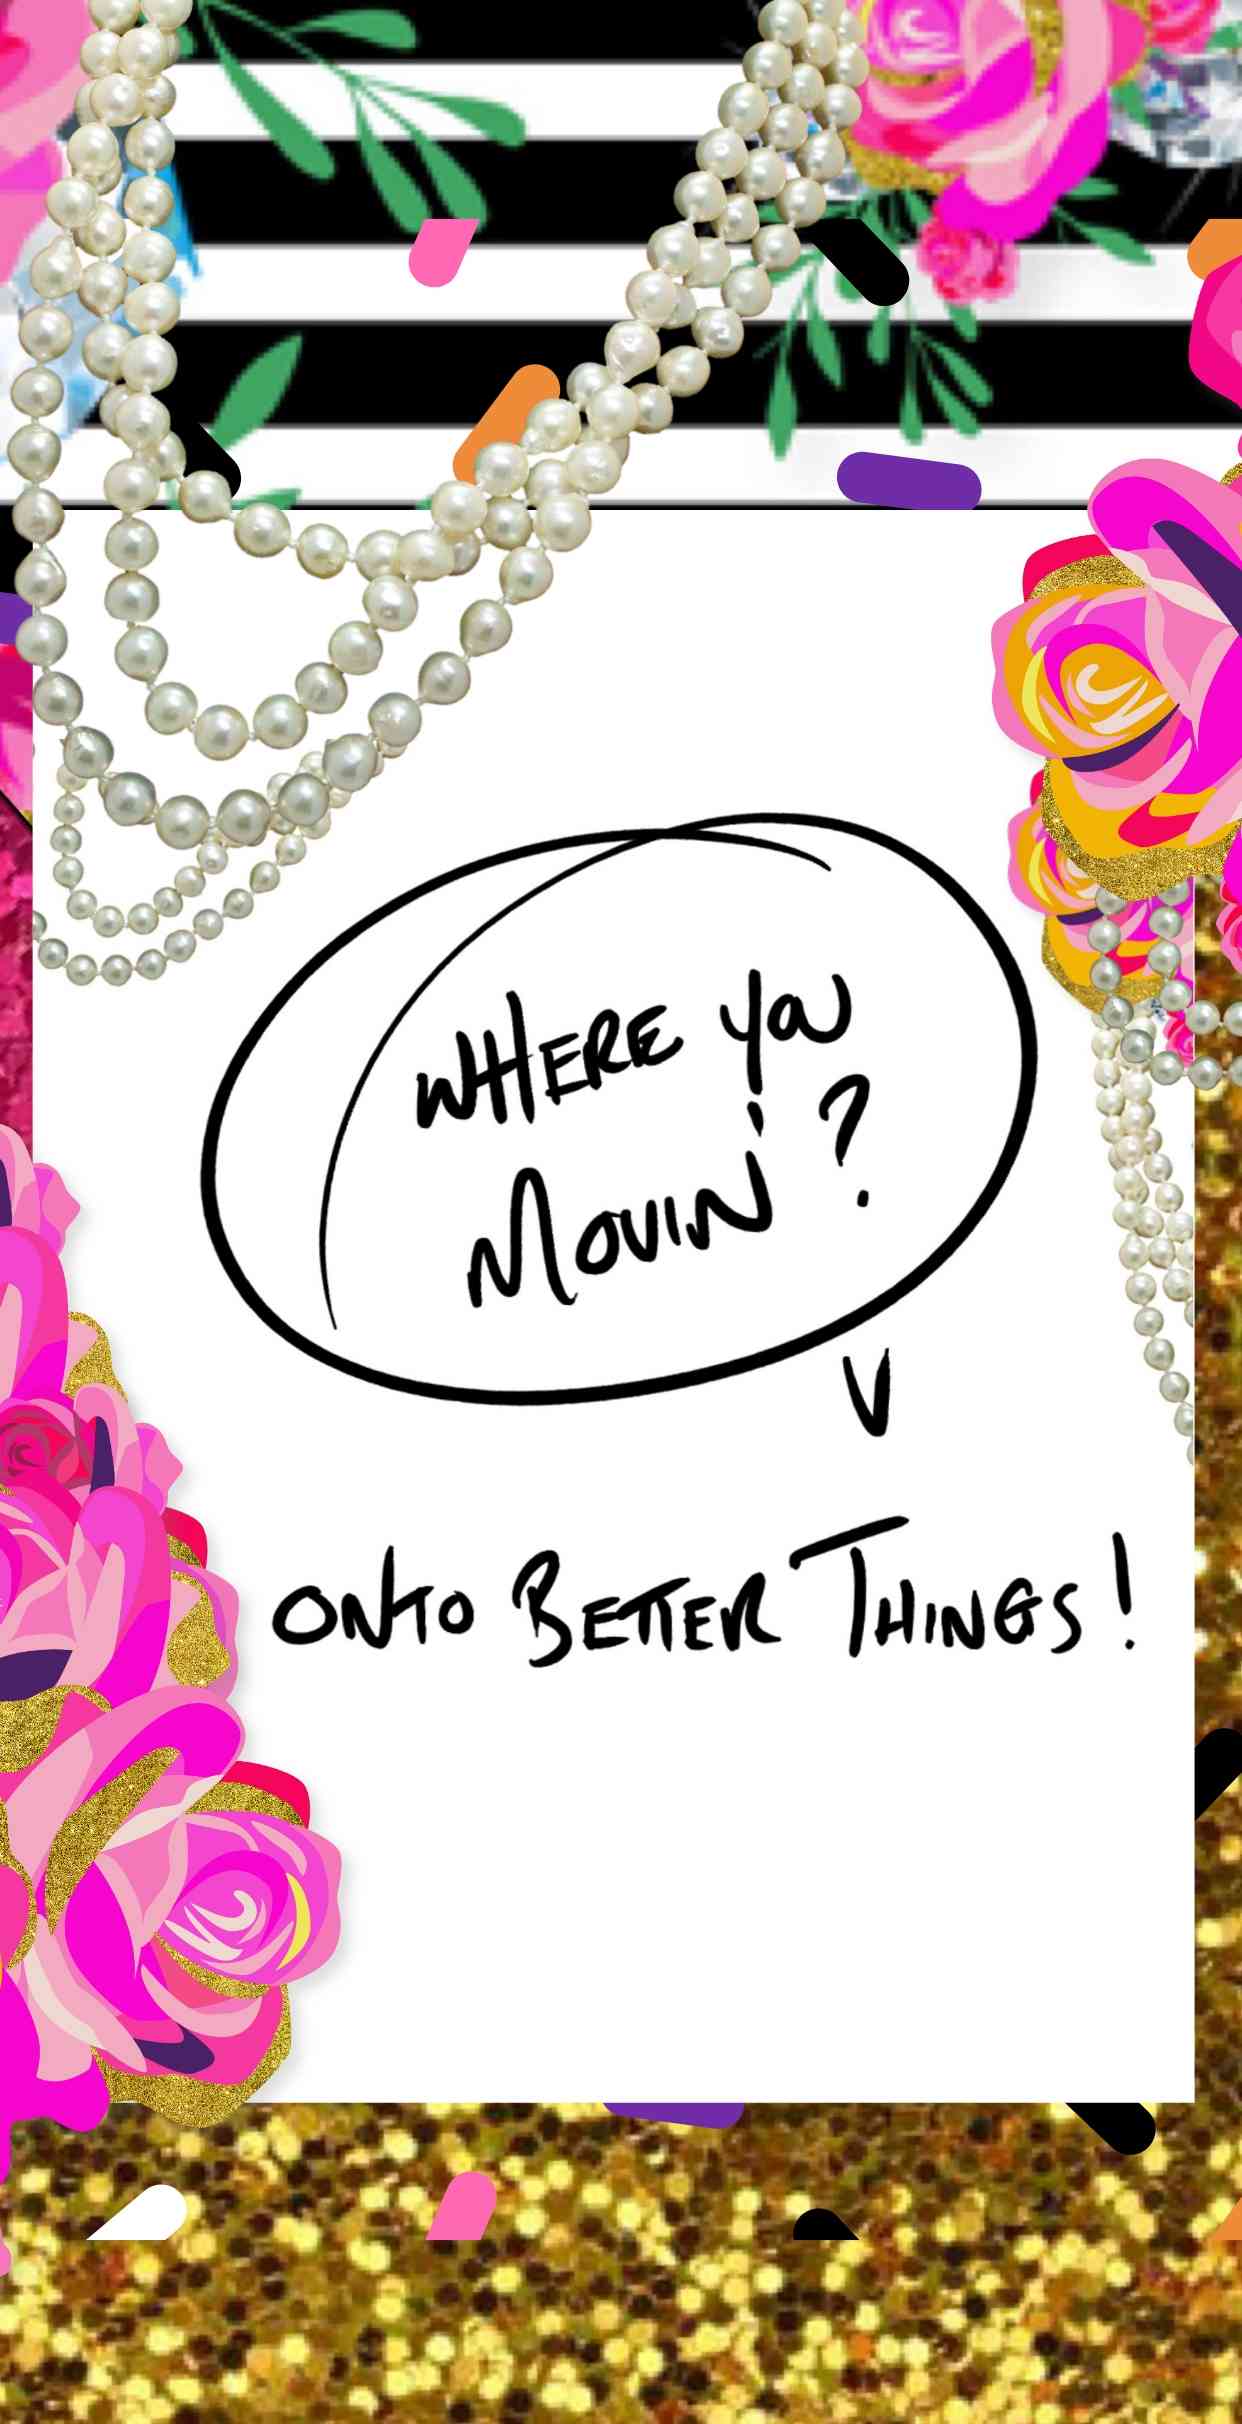 WHERE YOU
MOVIN'?
V
ONTO BETTER THINGS!